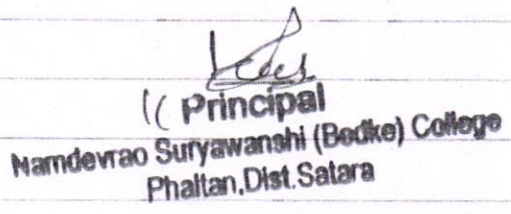 Principal
Namdevrao Suryawanshi (Bedke) College
Phaltan,Dist.Satara